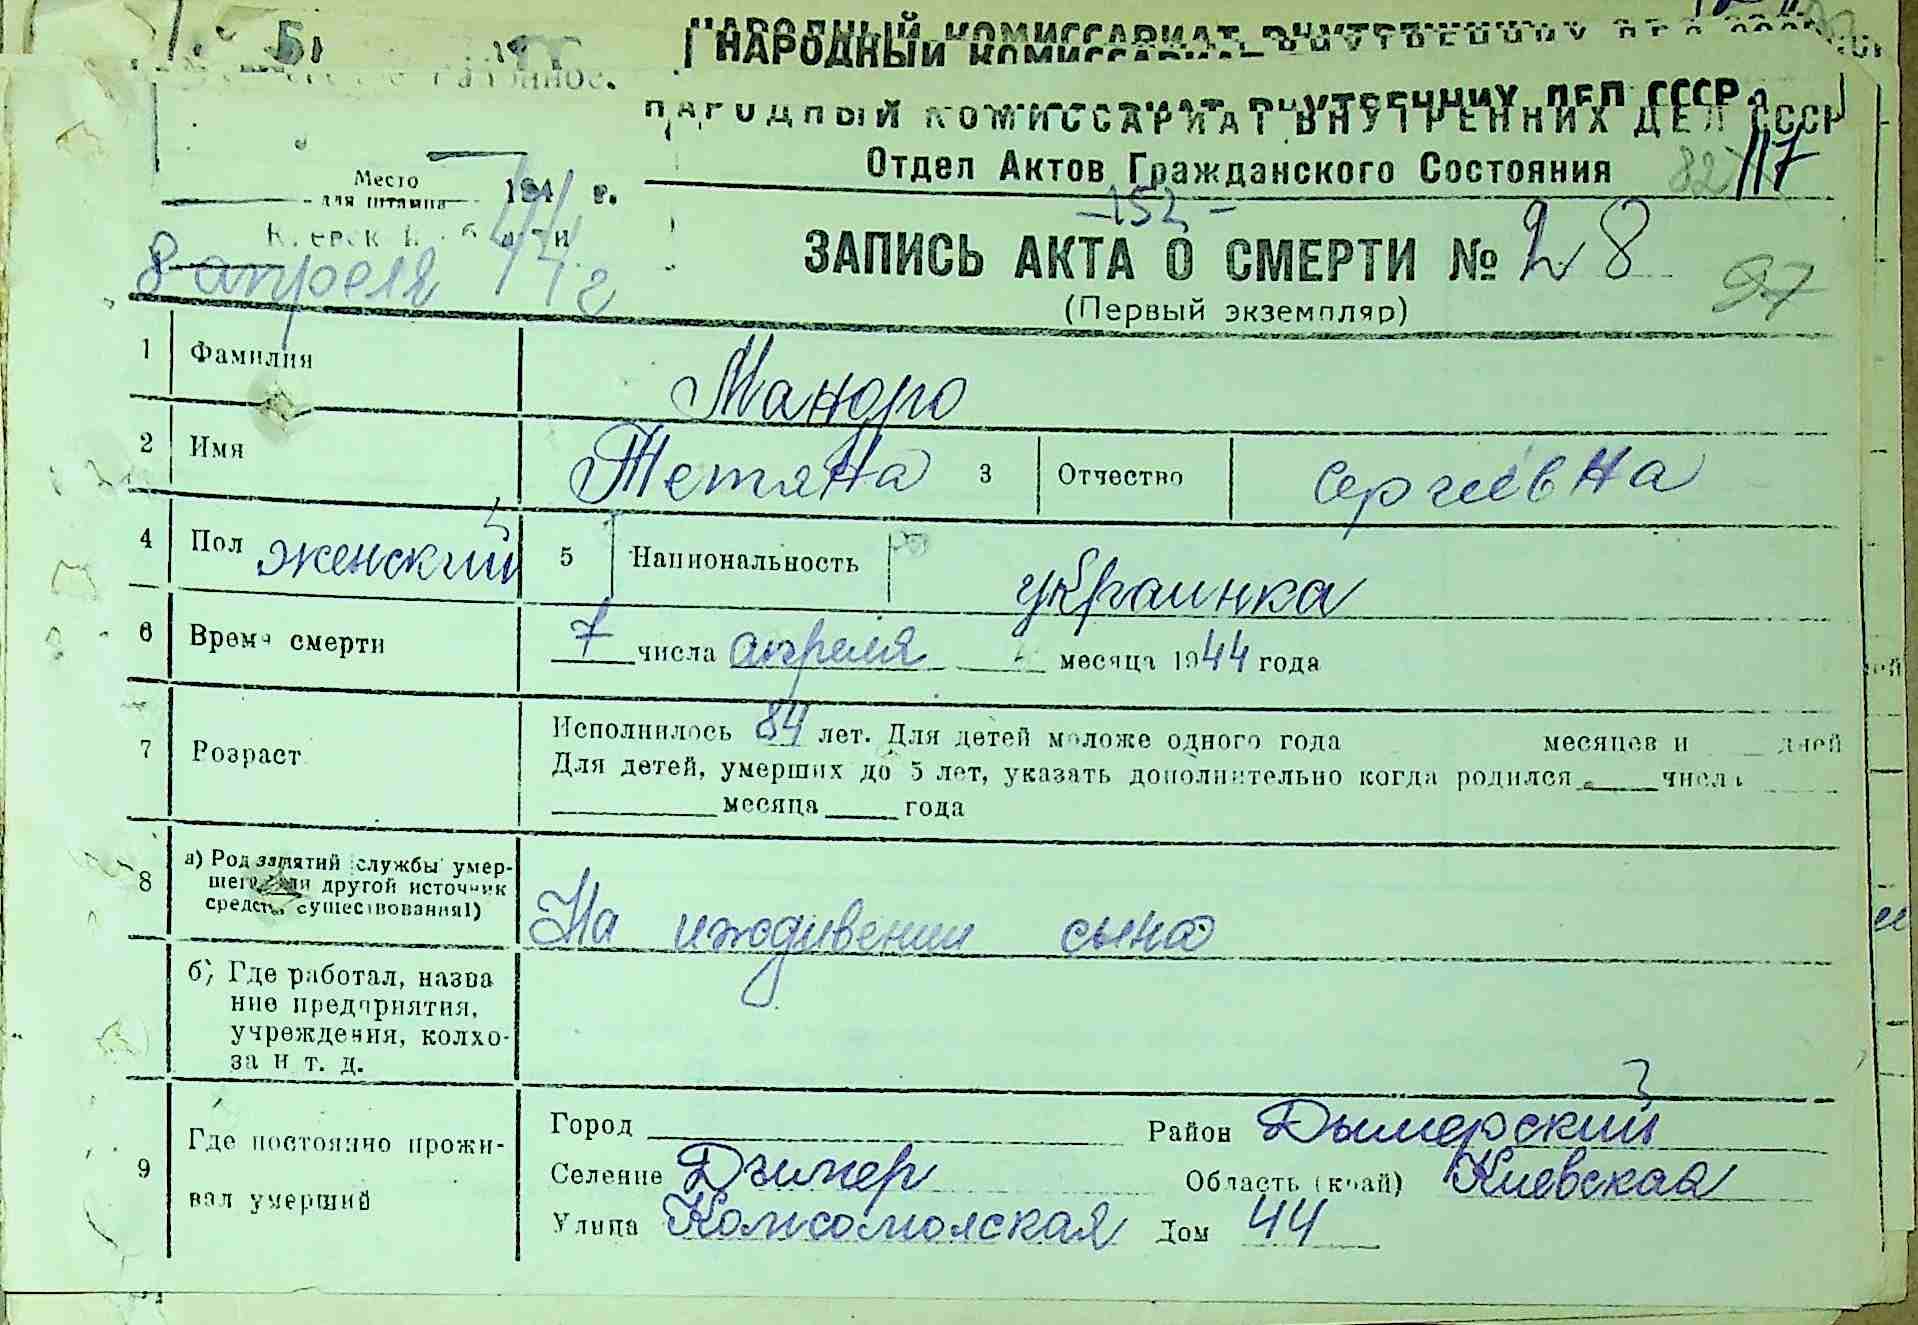 НАРОДНЫЙ КОМИССАРИАТ
НАРОДНЫЙ КОМИССАРИАТ
НАРОДНЫЙ КОМИССАРИАТ ВНУТРЕННИХ ДЕЛ СССР
Отдел Актов Гражданского Состояния
827 117
Место
для штампа
194 44 г.
-152-
8 апреля 44 г
ЗАПИСЬ АКТА О СМЕРТИ № 28
97
(Первый экземпляр)
1 Фамилия Мандро
2 Имя Тетяна 3 Отчество Сергіевна
4 Пол женский 5 Национальность украинка
6 Время смерти 7 числа апреля месяца 1944 года
7 Розраст Исполнилось 84 лет. Для детей моложе одного года месяцев и дней
Для детей, умерших до 5 лет, указать дополнительно когда родился числа
месяца года
8 а) Род занятий службы умер-
шего или другой источник
средств существования1)
На иждивении сына
б) Где работал, назва
ние предприятия,
учреждения, колхо-
за и т. д.
9 Где постоянно прожи-
вал умерший
Город Район Дымерский
Селение Дымер Область (край) Киевская
Улица Комсомолская Дом 44